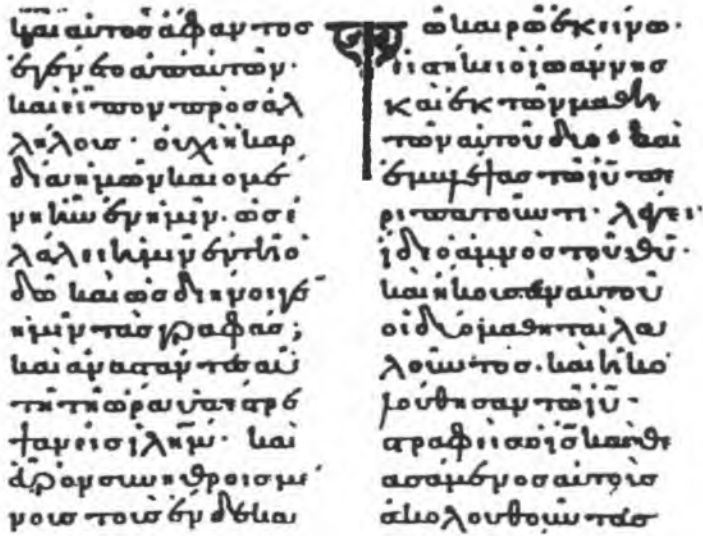 καὶ αὐτὸς ἄφαντος
ἐγένετο ἀπ' αὐτῶν·
καὶ εἶπον πρὸς ἀλ
λήλους· οὐχὶ ἡ καρ
δία ἡμῶν καιομέ
νη ἦν ἐν ἡμῖν· ὡς ἐ
λάλει ἡμῖν ἐν τῆ ὁ
δῶ καὶ ὡς διήνοιγε
ἡμῖν τὰς γραφάς;
καὶ ἀναστάντες αὐ
τῆ τῆ ὥρα ὑπέστρε
ψαν εἰς ἰλῆμ· καὶ
εὗρον συνηθροισμέ
νους τοὺς ἕνδεκα
Τῶ καιρῶ ἐκείνω·
εἱστήκει ὁ ἰωάννης
καὶ ἐκ τῶν μαθη
τῶν αὐτοῦ δύο· καὶ
ἐμβλέψας τῶ ιῦ πε
ριπατοῦντι· λέγει·
ἴδε ὁ ἀμνὸς τοῦ θῦ·
καὶ ἤκουσαν αὐτοῦ
οἱ δύο μαθηταὶ λα
λοῦντος· καὶ ἠκο
λούθησαν τῶ ιῦ·
στραφεὶς ὁ ις καὶ θε
ασάμενος αὐτοὺς
ἀκολουθοῦντας